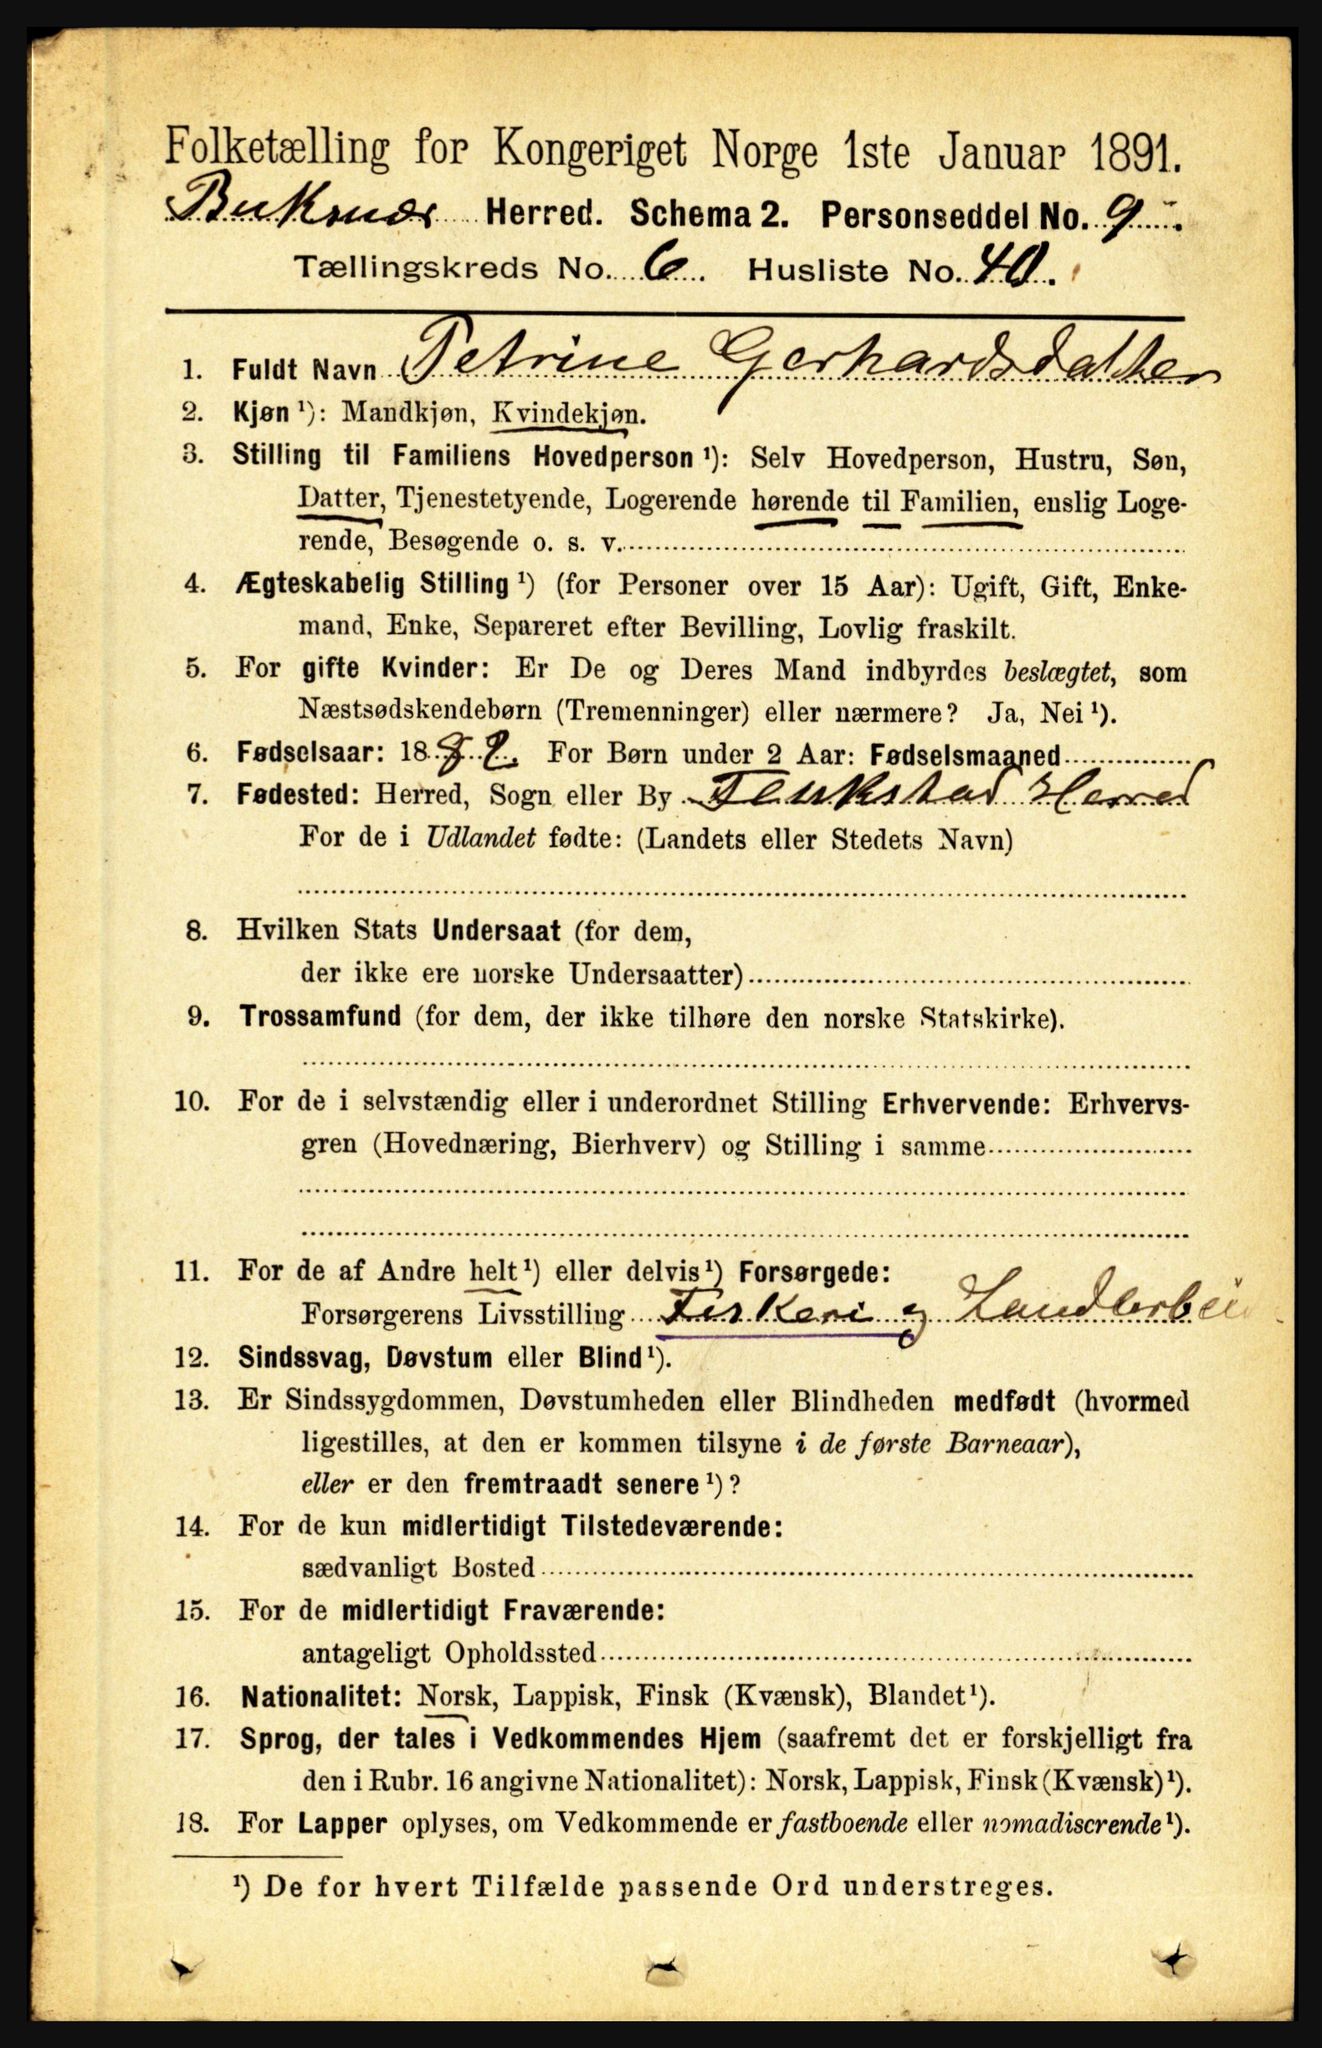 Folketælling for Kongeriget Norge 1ste Januar 1891.
Buksnæs Herred. Schema 2. Personseddel No. 9.
Tællingskreds No. 6. Husliste No. 40.
1. Fuldt Navn Petrine Gerhardsdatter
2. Kjøn ¹): Mandkjøn, Kvindekjøn.
3. Stilling til Familiens Hovedperson ¹): Selv Hovedperson, Hustru, Søn,
Datter, Tjenestetyende, Logerende hørende til Familien, enslig Loge-
rende, Besøgende o. s. v.
4. Ægteskabelig Stilling ¹) (for Personer over 15 Aar): Ugift, Gift, Enke-
mand, Enke, Separeret efter Bevilling, Lovlig fraskilt.
5. For gifte Kvinder: Er De og Deres Mand indbyrdes beslægtet, som
Næstsødskendebørn (Tremenninger) eller nærmere? Ja, Nei ¹).
6. Fødselsaar: 18 For Børn under 2 Aar: Fødselsmaaned
7. Fødested: Herred, Sogn eller By Herred
For de i Udlandet fødte: (Landets eller Stedets Navn)
8. Hvilken Stats Undersaat (for dem,
der ikke ere norske Undersaatter)
9. Trossamfund (for dem, der ikke tilhøre den norske Statskirke).
10. For de i selvstændig eller i underordnet Stilling Erhvervende: Erhvervs-
gren (Hovednæring, Bierhverv) og Stilling i samme
11. For de af Andre helt ¹) eller delvis ¹) Forsørgede:
Forsørgerens Livsstilling Fiskeri og
12. Sindssvag, Døvstum eller Blind ¹).
13. Er Sindssygdommen, Døvstumheden eller Blindheden medfødt (hvormed
ligestilles, at den er kommen tilsyne i de første Barneaar),
eller er den fremtraadt senere ¹)?
14. For de kun midlertidigt Tilstedeværende:
sædvanligt Bosted
15. For de midlertidigt Fraværende:
antageligt Opholdssted
16. Nationalitet: Norsk, Lappisk, Finsk (Kvænsk), Blandet ¹).
17. Sprog, der tales i Vedkommendes Hjem (saafremt det er forskjelligt fra
den i Rubr. 16 angivne Nationalitet): Norsk, Lappisk, Finsk (Kvænsk) ¹).
18. For Lapper oplyses, om Vedkommende er fastboende eller nomadiserende ¹).
¹) De for hvert Tilfælde passende Ord understreges.